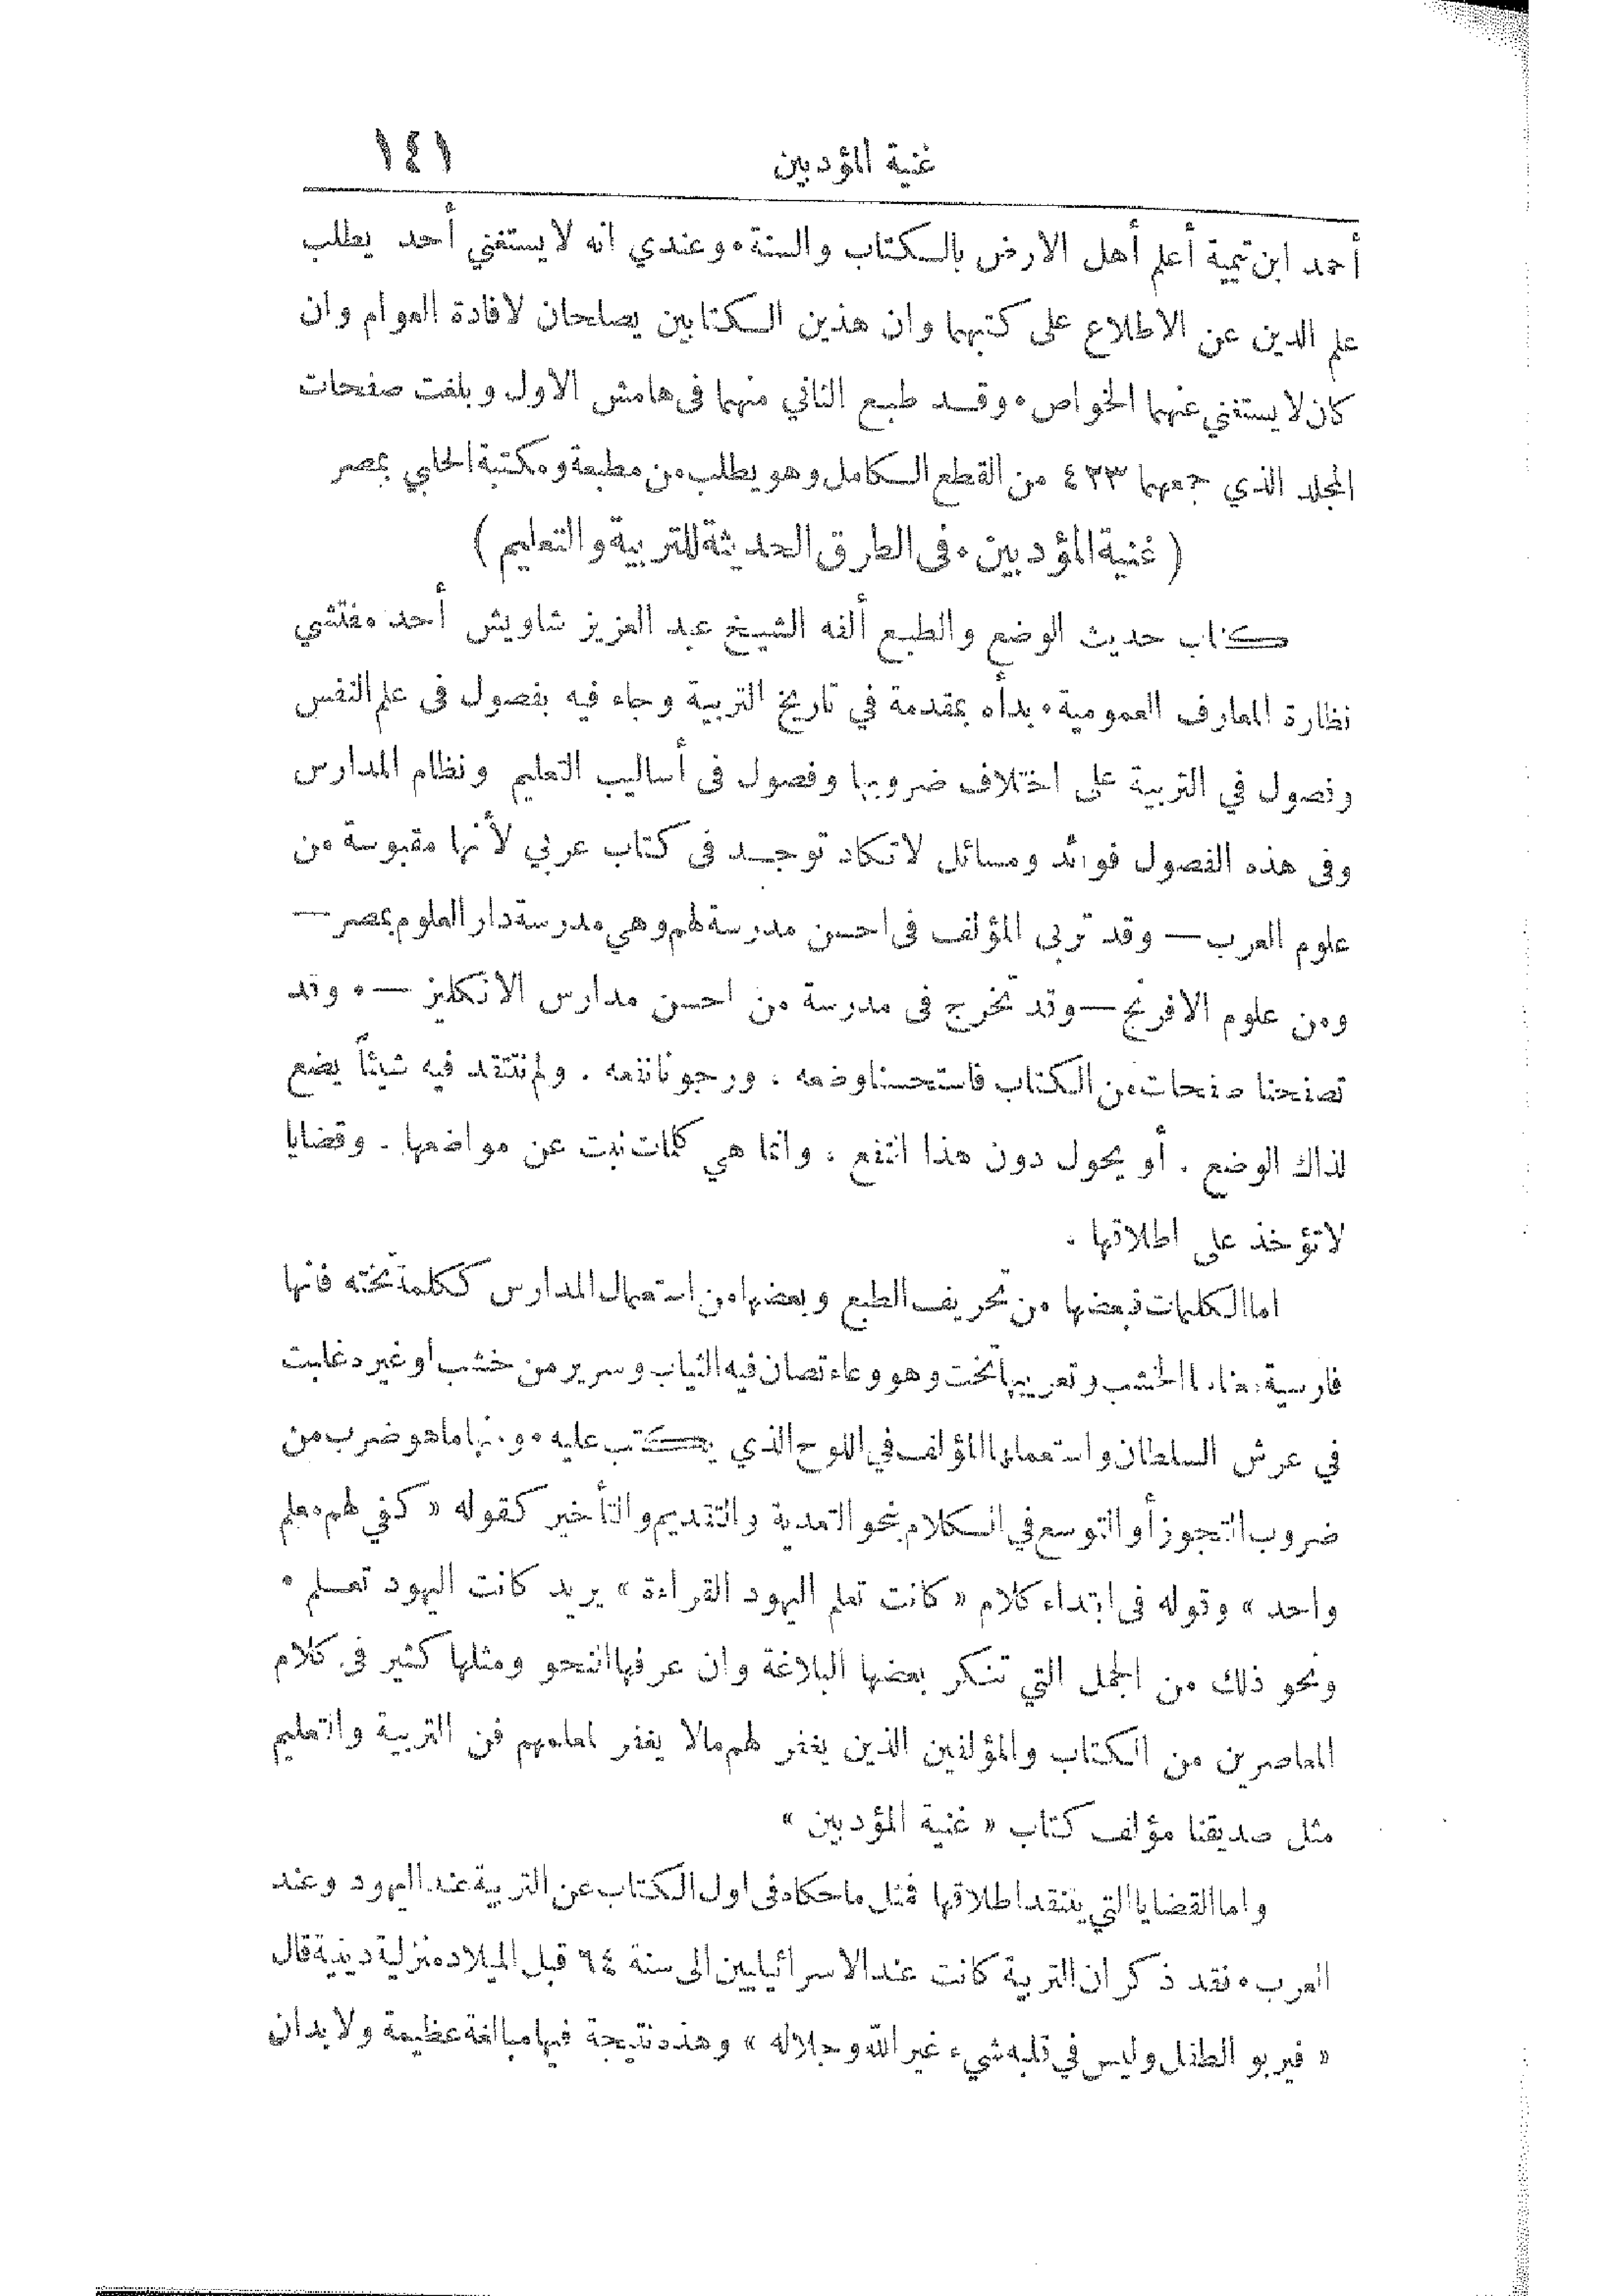 غنية المؤدبين ١٤١
أحمد ابن تيمية أعلم أهل الارض بالكتاب والسنة ٠ وعندي انه لا يستغني أحد يطلب
علم الدين عن الاطلاع على كتبهما وان هذين الكتابين يصلحان لافادة العوام وان
كان لا يستغني عنهما الخواص ٠ وقد طبع الثاني منهما فى هامش الاول وبلغت صفحات
المجلد الذي جمعهما ٤٣٣ من القطع الكامل وهو يطلب من مطبعة ومكتبة الحلبي بمصر
( غنية المؤدبين ٠ فى الطرق الحديثة للتربية والتعليم )
كتاب حديث الوضع والطبع ألفه الشيخ عبد العزيز شاويش أحد مفتشي
نظارة المعارف العمومية ٠ بدأه بمقدمة في تاريخ التربية وجاء فيه بفصول فى علم النفس
وفصول في التربية على اختلاف ضروبها وفصول فى أساليب التعليم ونظام المدارس
وفى هذه الفصول فوائد ومسائل لا تكاد توجد فى كتاب عربي لأنها مقبوسة من
علوم العرب — وقد تربى المؤلف فى احسن مدرسة لهم وهي مدرسة دار العلوم بمصر —
ومن علوم الافرنج — وقد تخرج فى مدرسة من احسن مدارس الانكليز — ٠ وقد
تصفحنا صفحات من الكتاب فاستحسنا وضعه ، ورجونا نفعه . ولم ننتقد فيه شيئاً يضع
لذاك الوضع . أو يحول دون هذا النفع ، وانما هي كلمات نبت عن مواضعها . وقضايا
لا تؤخذ على اطلاقها .
اما الكلمات فبعضها من تحريف الطبع وبعضها من استعمال المدارس ككلمة تخته فانها
فارسية معناها الخشب وتعريبها تخت وهو وعاء تصان فيه الثياب وسرير من خشب او غيره غلبت
في عرش السلطان واستعملها المؤلف في اللوح الذي يكتب عليه ٠ ومنها ما هو ضرب من
ضروب التجوز أو التوسع في الكلام بنحو التعدية والتقديم والتأخير كقوله « كفي لهم معلم
واحد » وقوله فى ابتداء كلام « كانت تعلم اليهود القراءة » يريد كانت اليهود تعلم ٠
ونحو ذلك من الجمل التي تنكر بعضها البلاغة وان عرفها النحو ومثلها كثير فى كلام
المعاصرين من الكتاب والمؤلفين الذين يغفر لهم مالا يغفر لمعلمهم فن التربية والتعليم
مثل صديقنا مؤلف كتاب « غنية المؤدبين »
واما القضايا التي ينتقد اطلاقها فمثل ما حكاه فى اول الكتاب عن التربية عند اليهود وعند
العرب ٠ فقد ذكر ان التربية كانت عند الاسرائيليين الى سنة ٦٤ قبل الميلاد منزلية دينية قال
« فيربو الطفل وليس في قلبه شيء غير الله وجلاله » وهذه نتيجة فيها مبالغة عظيمة ولا بد ان